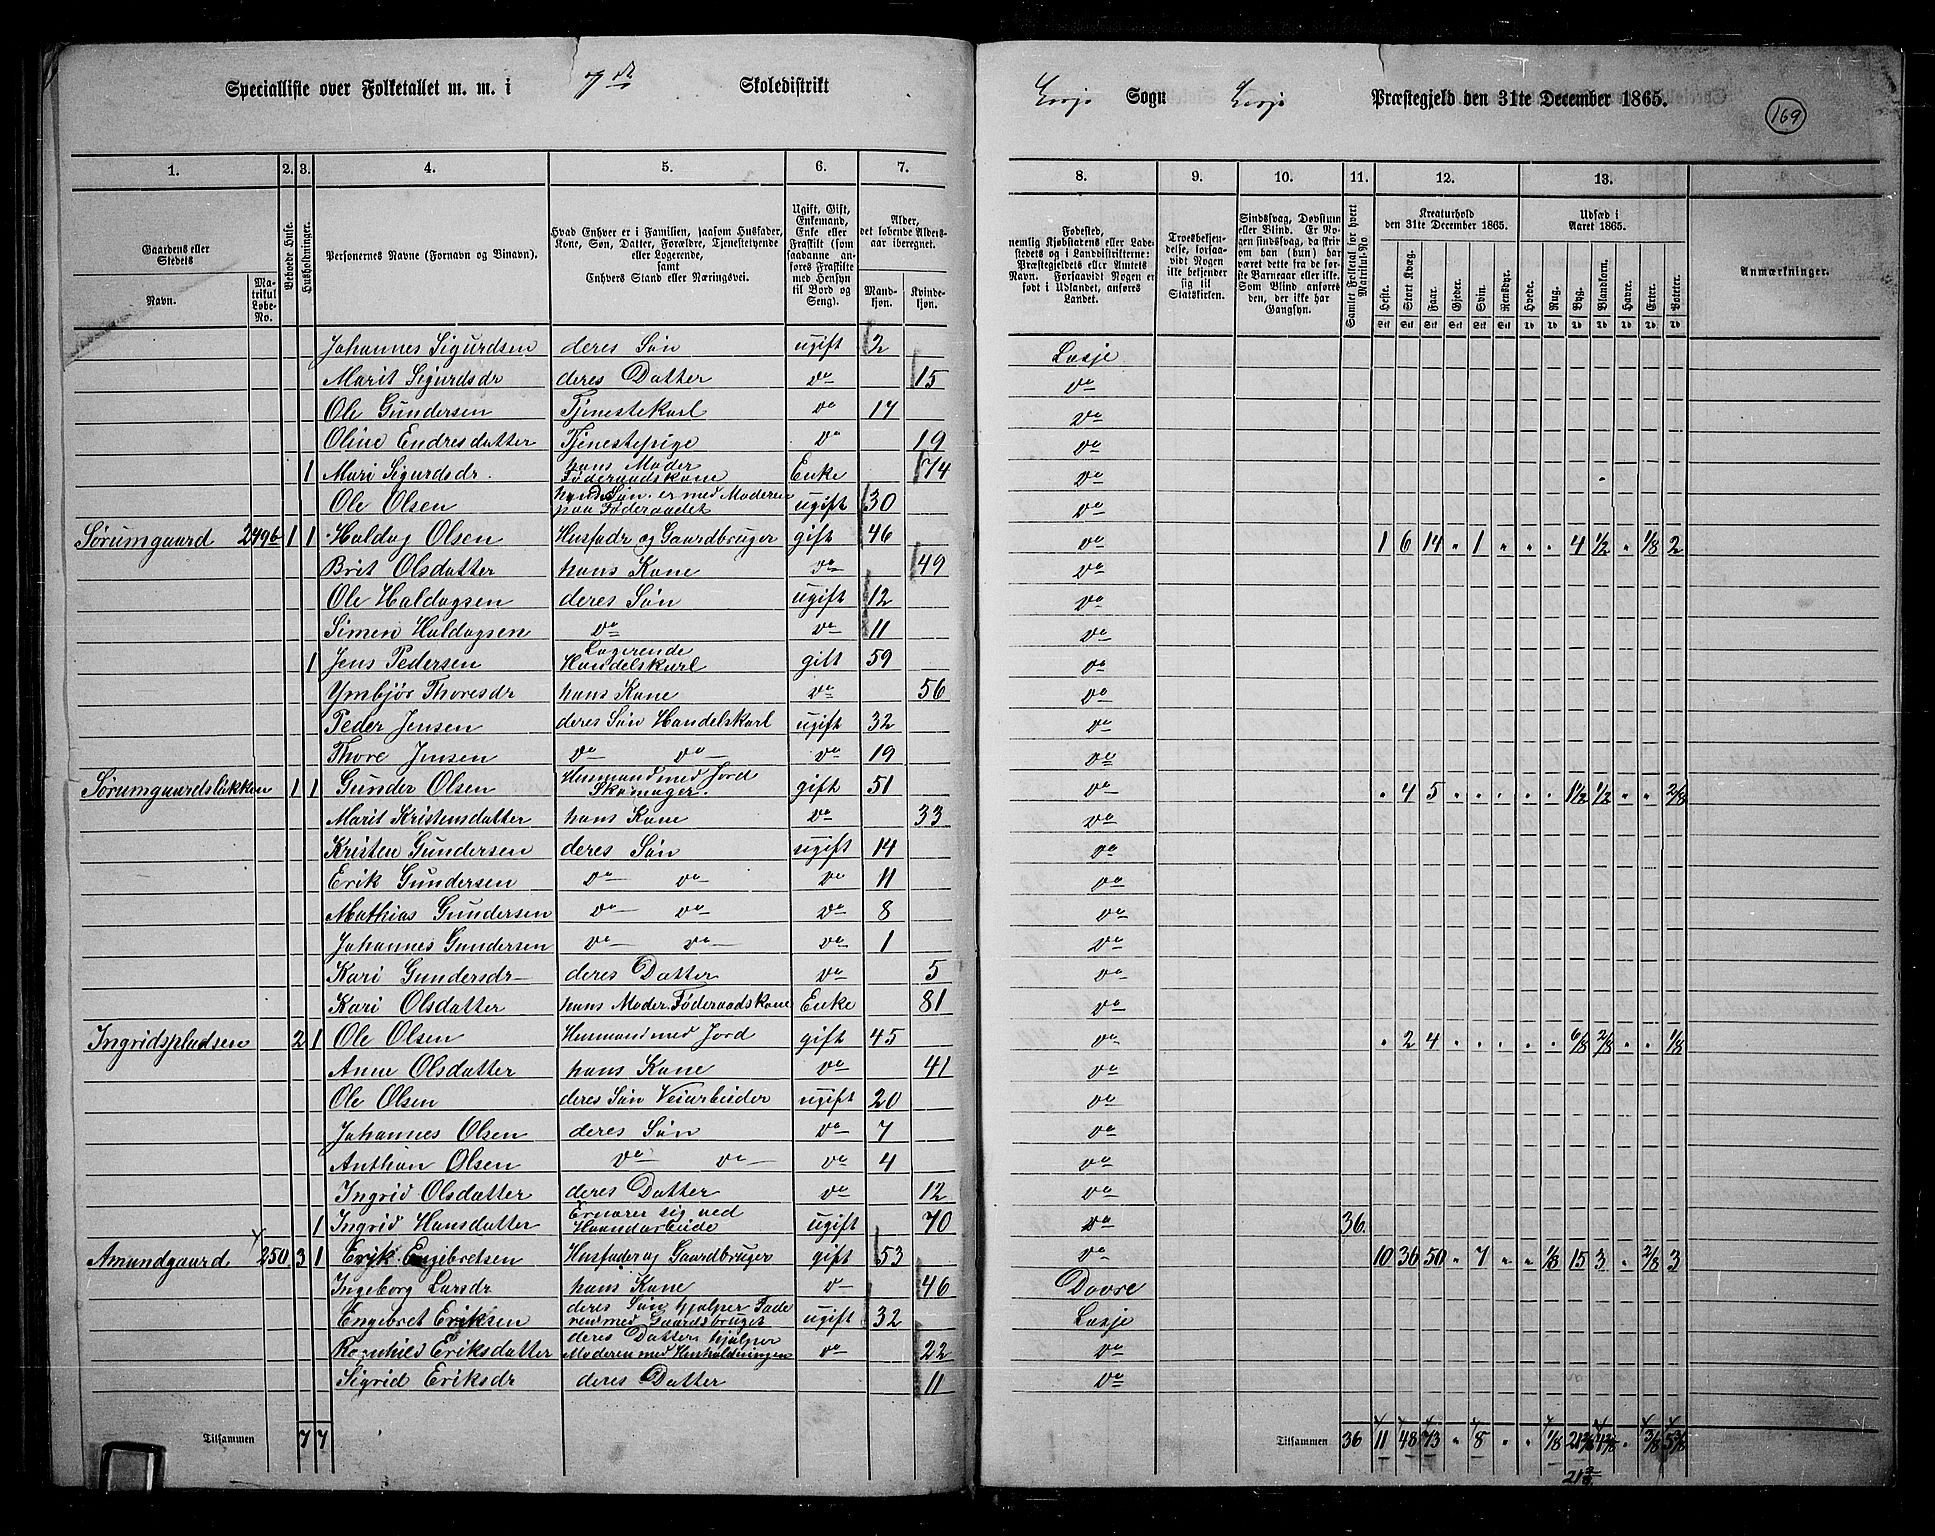 Specialliste over Folketallet m. m. i 7de Skoledistrikt Lesje Sogn Lesje Præstegjeld den 31te December 1865. 169
1. 2. 3. 4. 5. 6. 7. 8. 9. 10. 11. 12. 13.
Gaardens eller Stedets
Navn. Matrikul Løbe-No.
Beboede Huse.
Husholdninger.
Personernes Navne (Fornavn og Binavn).
Hvad Enhver er i Familien, saasom Husfader, Kone, Søn, Datter, Forældre, Tjenestetyende eller Logerende, samt Enhvers Stand eller Næringsvei.
Ugift, Gift, Enkemand, Enke eller Fraskilt (som saadanne anføres Fraskilte med Hensyn til Bord og Seng).
Alder, det løbende Alders-aar iberegnet.
Mandkjøn. Kvindekjøn.
Fødested, nemlig Kjøbstadens eller Ladestedets og i Landdistrikterne: Præstegjeldets eller Amtets Navn. Forsaavidt Nogen er født i Udlandet, anføres Landet.
Troesbekjendelse, forsaavidt Nogen ikke bekjender sig til Statskirken.
Sindssvag, Døvstum eller Blind. Er Nogen sindssvag, da skrives om han (hun) har været dette fra de første Barneaar eller ikke. Som Blind anføres den, der ikke har Gangsyn.
Samlet Folketal for hvert Matrikul-No
Kreaturhold den 31te December 1865.
Heste. Stort Kvæg. Faar. Gjeder. Svin. Rensdyr.
Udsæd i Aaret 1865.
Hvede. Rug. Byg. Blandkorn. Havre. Erter. Poteter.
Anmærkninger.
Johannes Sigurdsen deres Søn ugift 2 Lesje
Marit Sigurdsdr deres Datter do 15 do
Ole Gundersen Tjenestekarl do 17 do
Oline Endresdatter Tjenestepige do 19 do
1 Mari Sigurdsdr. hans Moder Føderaadskone Enke 74 do
Ole Olsen hendes Søn er med Moderen paa Føderaadet ugift 30 do
Sørumgaard 249b 1 1 Haldog Olsen Husfadr og Gaardbruger gift 46 do 1 6 14 " 1 " " " 4 1/2 " 1/8 2
Brit Olsdatter hans Kone do 49 do
Ole Haldogsen deres Søn ugift 12 do
Simen Haldogsen do do 11 do
1 Jens Pedersen Logerende Handelskarl gift 59 do
Ymbjør Thoresdr hans Kone do 56 do
Peder Jensen deres Søn Handelskarl ugift 32 do
Thore Jensen do do do 19 do
Sørumgaardsløkken 1 1 Gunder Olsen Husmand med Jord Skomager. gift 51 do " 4 5 " " " " " 1 1/2 1/2 " " 2/8
Marit Kristensdatter hans Kone do 33 do
Kristen Gundersen deres Søn ugift 14 do
Erik Gundersen do do do 11 do
Mathias Gundersen do do do 8 do
Johannes Gundersen do do do 1 do
Kari Gundersdr deres Datter do 5 do
Kari Olsdatter hans Moder Føderaadskone Enke 81 do
Ingridspladsen 2 1 Ole Olsen Husmand med Jord gift 45 do " 2 4 " " " " " 6/8 2/8 " " 1/8
Anne Olsdatter hans Kone do 41 do
Ole Olsen deres Søn Veiarbeider ugift 20 do
Johannes Olsen deres Søn do 7 do
Anthon Olsen do do do 4 do
Ingrid Olsdatter deres Datter do 12 do
1 Ingrid Hansdatter Ernærer sig ved Haandarbeide ugift 70 do 36
Amundgaard 250 3 1 Erik Engebretsen Husfader og Gaardbruger gift 53 do 10 36 50 " 7 " " 1/8 15 3 " 2/8 3
Ingeborg Larsdr hans Kone do 46 Dovre
Engebret Eriksen deres Søn hjælper Faderen med Gaardsbruget ugift 32 Lesje
Ragnhild Eriksdatter deres Datter hjælper Moderen med Husholdningen do 22 do
Sigrid Eriksdr deres Datter 11 do
Tilsammen 7 7 Tilsammen 36 11 48 73 " 8 " " 1/8 " 3/8